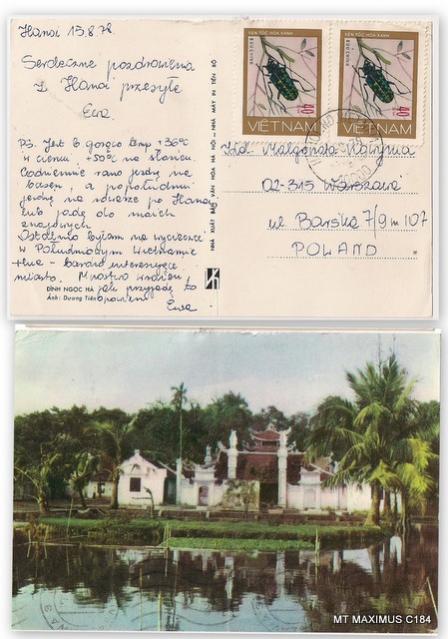 Hanoi 15.8.78.
Serdeczne pozdrowienia
z Hanoi przesyła
Ewa
PS. Jest b. gorąco temp +36°
w cieniu, +50° na słońcu.
Codziennie rano jeżdżę na
basen, a popołudniu
jeżdżę na rowerze po Hanoi
lub jadę do moich
znajomych
Ostatnio byłam na wycieczce
w Południowym Wietnamie
Hue - bardzo interesujące
miasto.
jak przyjadę to
opowiem
Ewa
ĐÌNH NGỌC HÀ
Ảnh: Dương Tiên
NHÀ XUẤT BẢN VĂN HÓA HÀ NỘI - NHÀ MÁY IN TIẾN BỘ
XÉN TÓC HOA XANH
BƯU CHÍNH
40
VIỆTNAM
XÉN TÓC HOA XANH
BƯU CHÍNH
40
VIỆTNAM
Małgorzata
02-315 Warszawa
ul Barska 7/9 m 107
POLAND
MT MAXIMUS C184